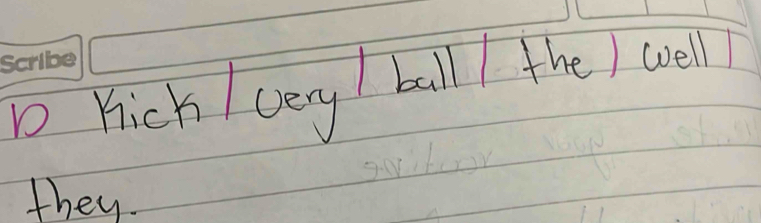 Scribe
D Kick / very / ball / the / well /
they.